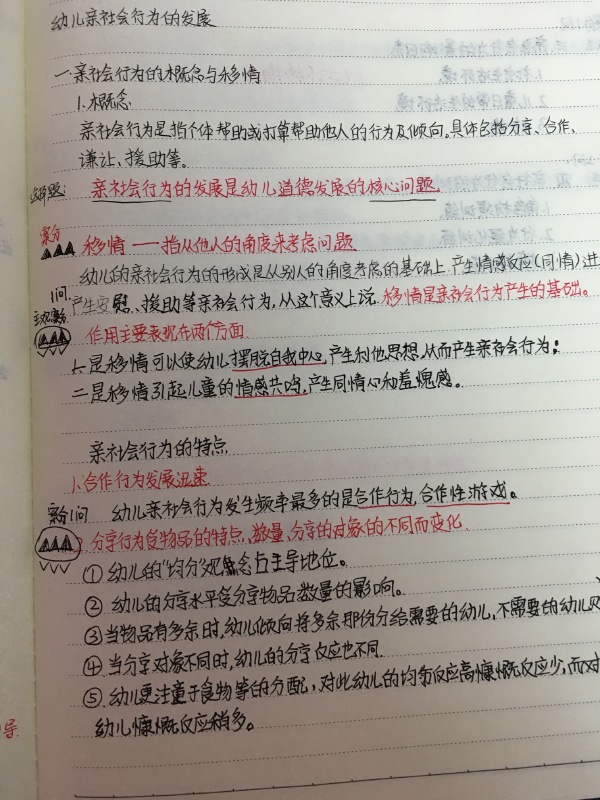 幼儿亲社会行为的发展
一.亲社会行为的概念与移情
1.概念
亲社会行为是指个体帮助或打算帮助他人的行为及倾向。具体包括分享、合作、
谦让、援助等。
选择题: 亲社会行为的发展是幼儿道德发展的核心问题.
案分
移情 — 指从他人的角度来考虑问题
幼儿的亲社会行为的形成是从别人的角度考虑的基础上产生情感反应(同情)进
1问 产生安慰、援助等亲社会行为,从这个意义上说,移情是亲社会行为产生的基础。
作用主要表现在两个方面
一是移情可以使幼儿摆脱自我中心,产生利他思想,从而产生亲社会行为;
二是移情引起儿童的情感共鸣,产生同情心和羞愧感。
亲社会行为的特点
1.合作行为发展迅速
案分1问 幼儿亲社会行为发生频率最多的是合作行为,合作性游戏。
分享行为受物品的特点、数量、分享的对象的不同而变化.
① 幼儿的"均分"观念占主导地位。
② 幼儿的分享水平受分享物品数量的影响。
③ 当物品有多余时,幼儿倾向将多余那份分给需要的幼儿,不需要的幼儿
④ 当分享对象不同时,幼儿的分享反应也不同.
⑤ 幼儿更注重于食物等的分配,对此幼儿的均分反应高慷慨反应少,而对
幼儿慷慨反应稍多。
导